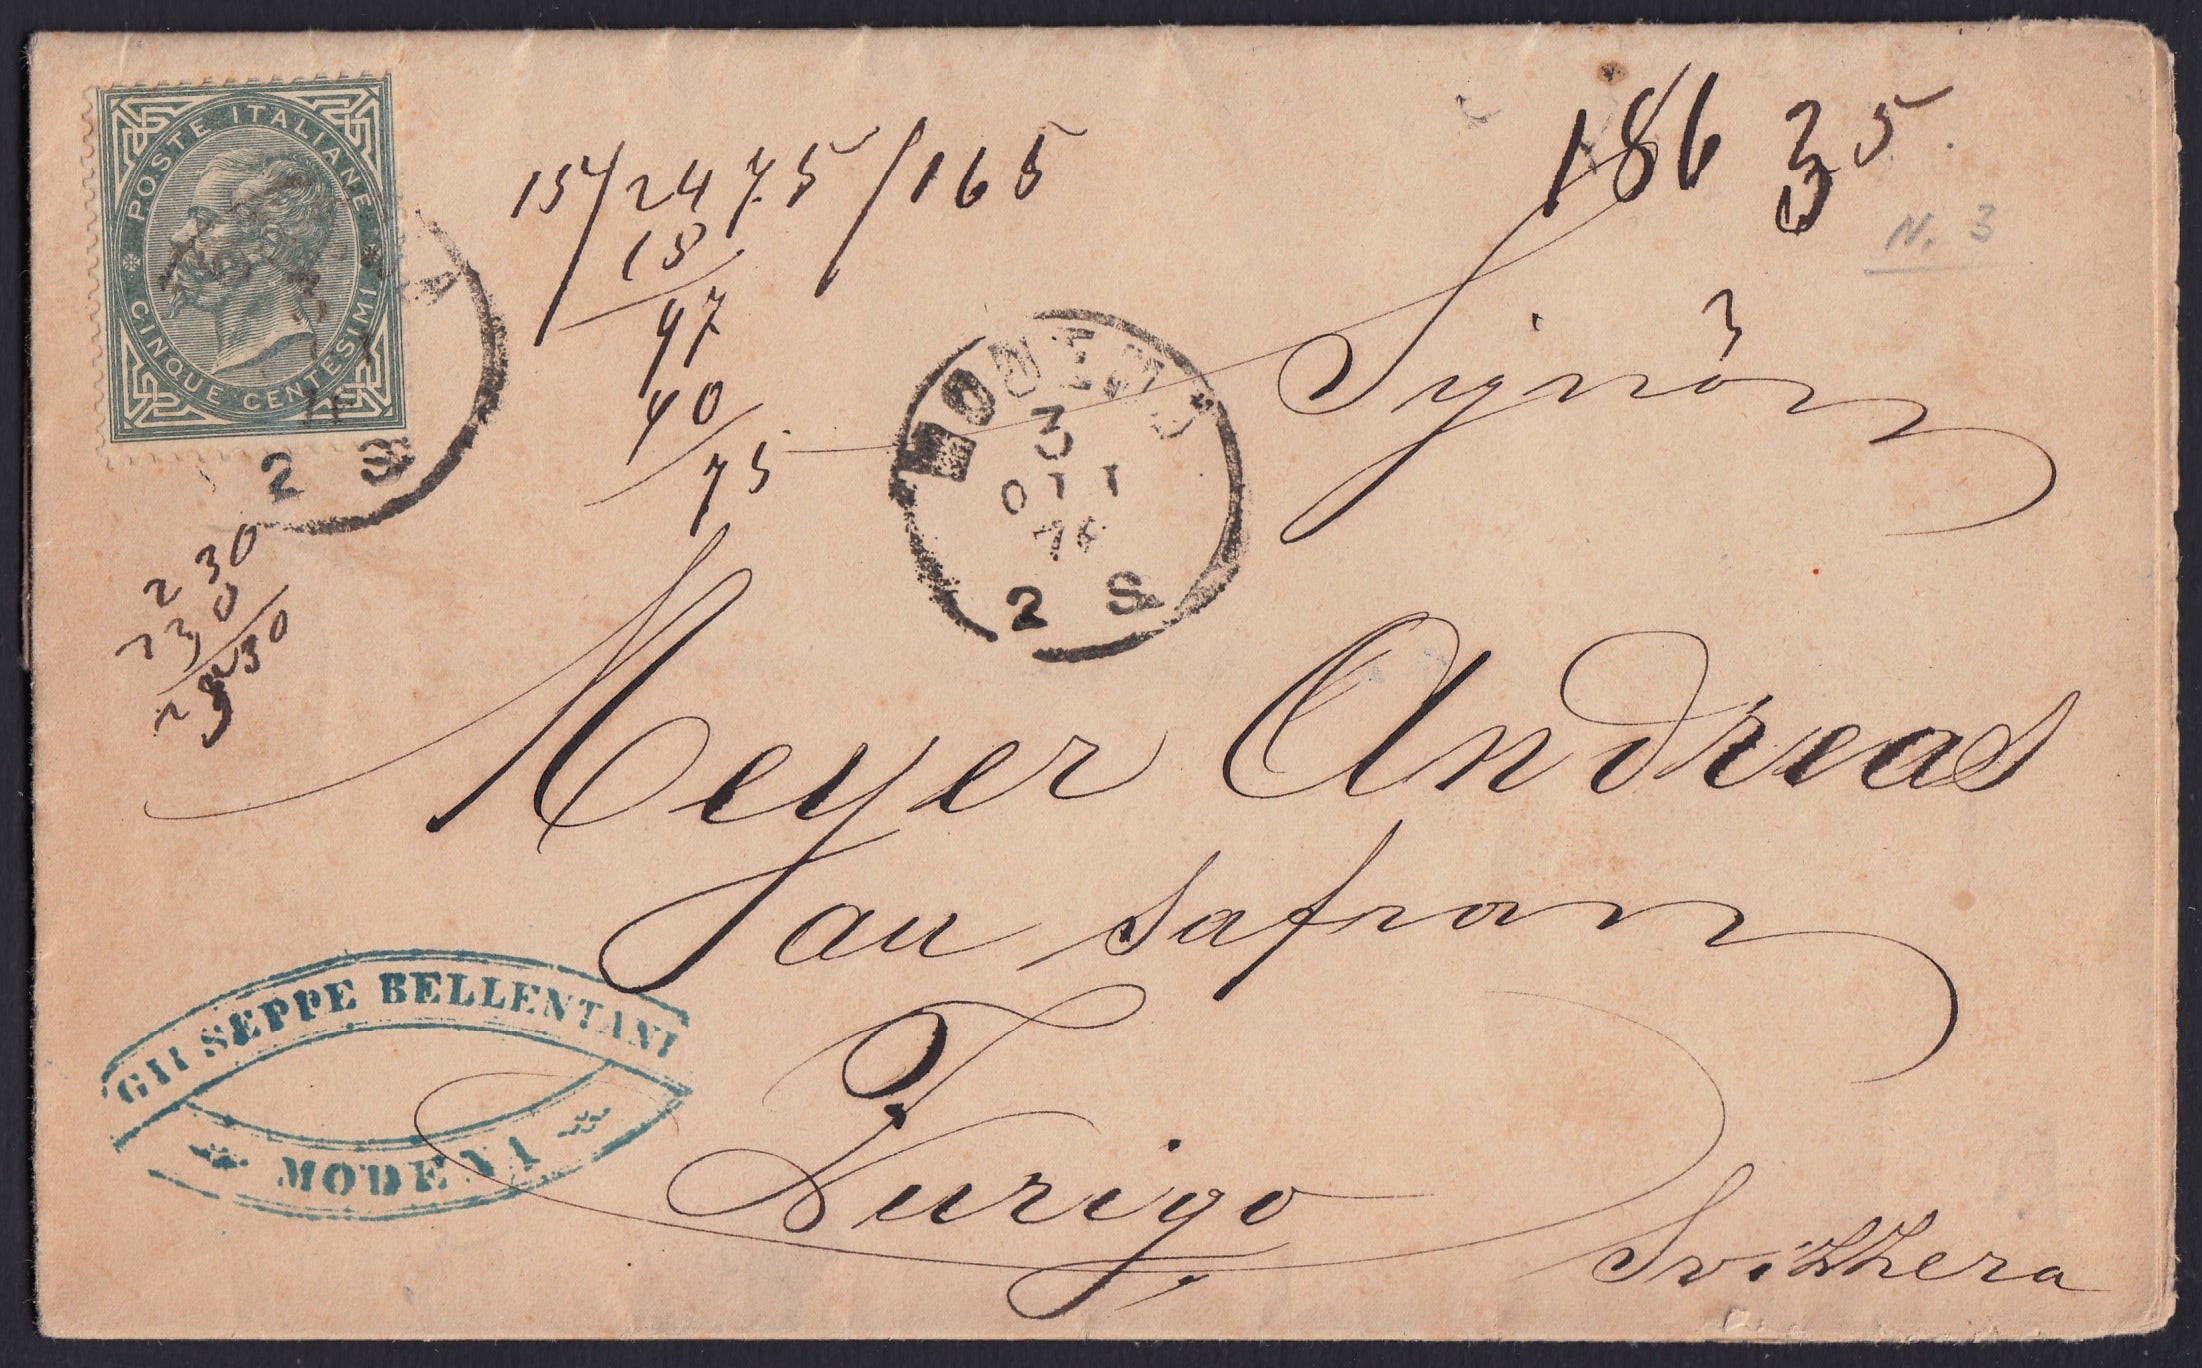 POSTE ITALIANE
CINQUE CENTESIMI
2 S
15/2475/165
15
97
90
75
186 35
N. 3
Signor
MODENA
3
OTT
2 S
2 30
Meyer Andreas
au Safran
Zurigo
Svizzera
GIUSEPPE BELLENTANI
MODENA